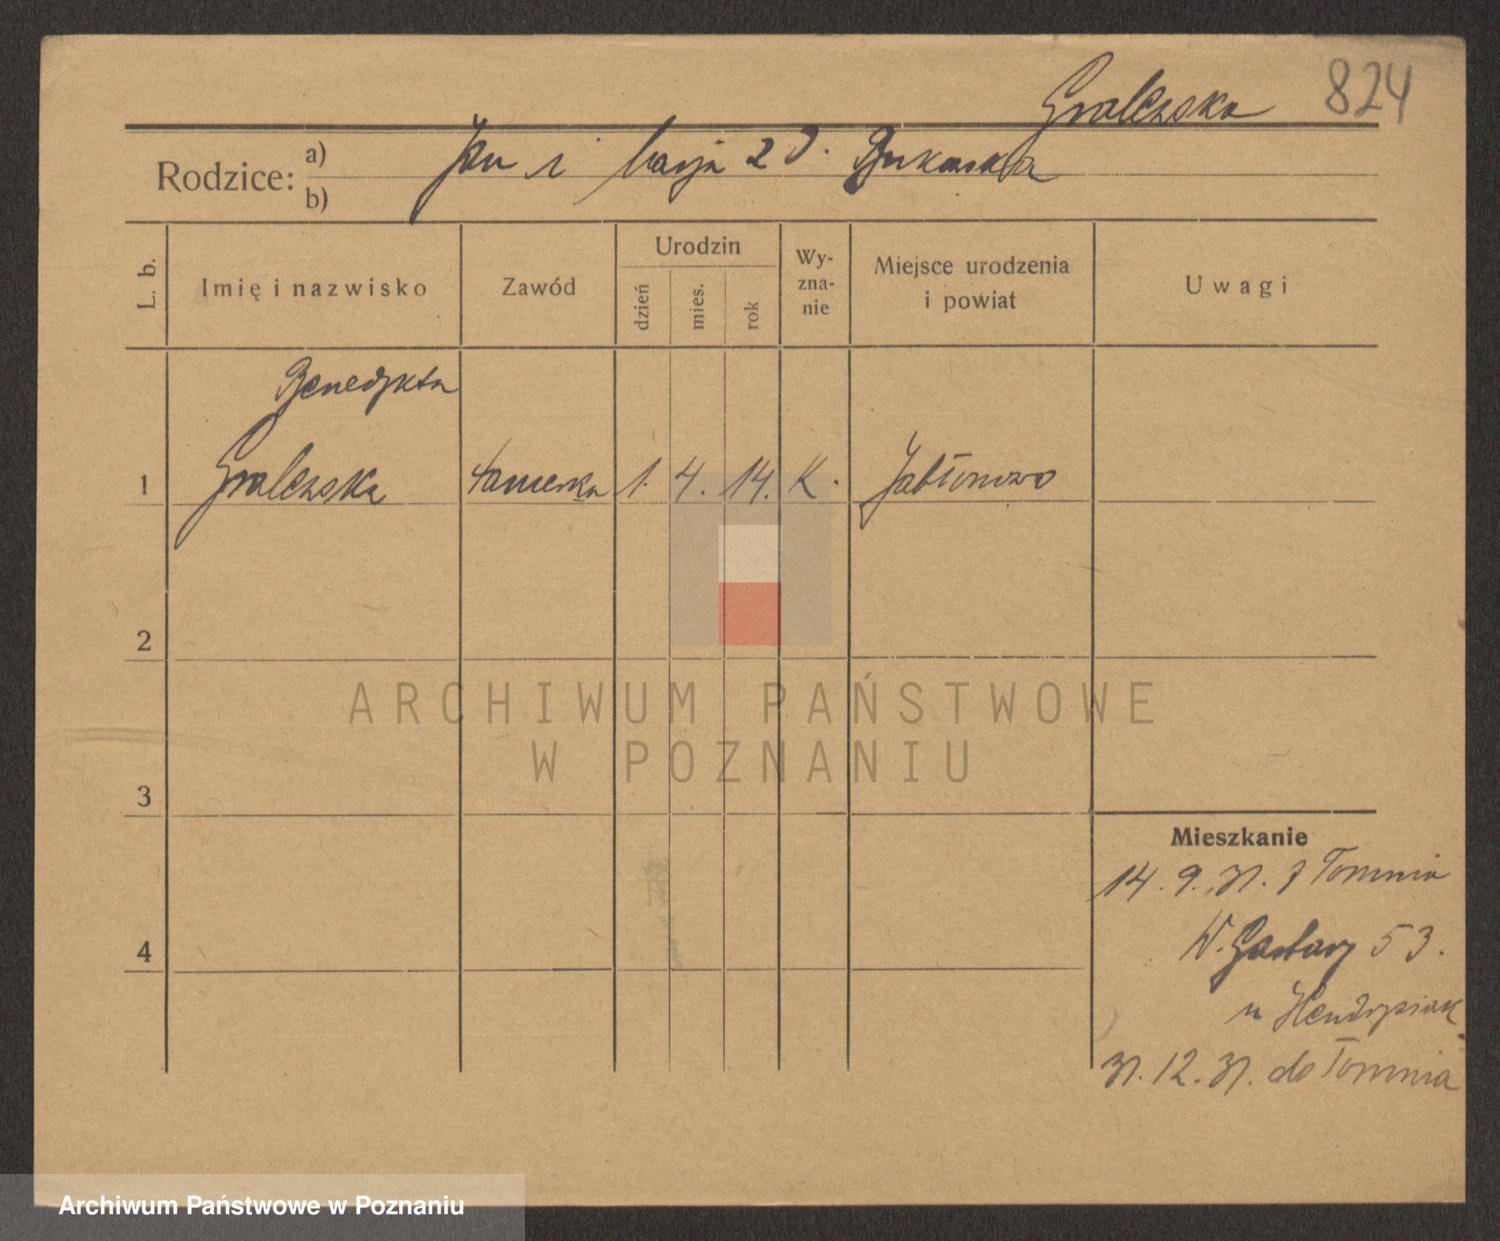 Gralewska 824
Rodzice: a) Jan i Marja z d. Bukowska
b)
L. b. Imię i nazwisko Zawód Urodzin dzień mies. rok Wyznanie Miejsce urodzenia i powiat Uwagi
Benedykta
1 Gralewska 1. 4. 14. K. Jabłonowo
2
3
4
Mieszkanie
14. 9. 31. z Torunia
W. Garbary 53.
u
31. 12. 31. do Torunia
ARCHIWUM PAŃSTWOWE
W POZNANIU
Archiwum Państwowe w Poznaniu